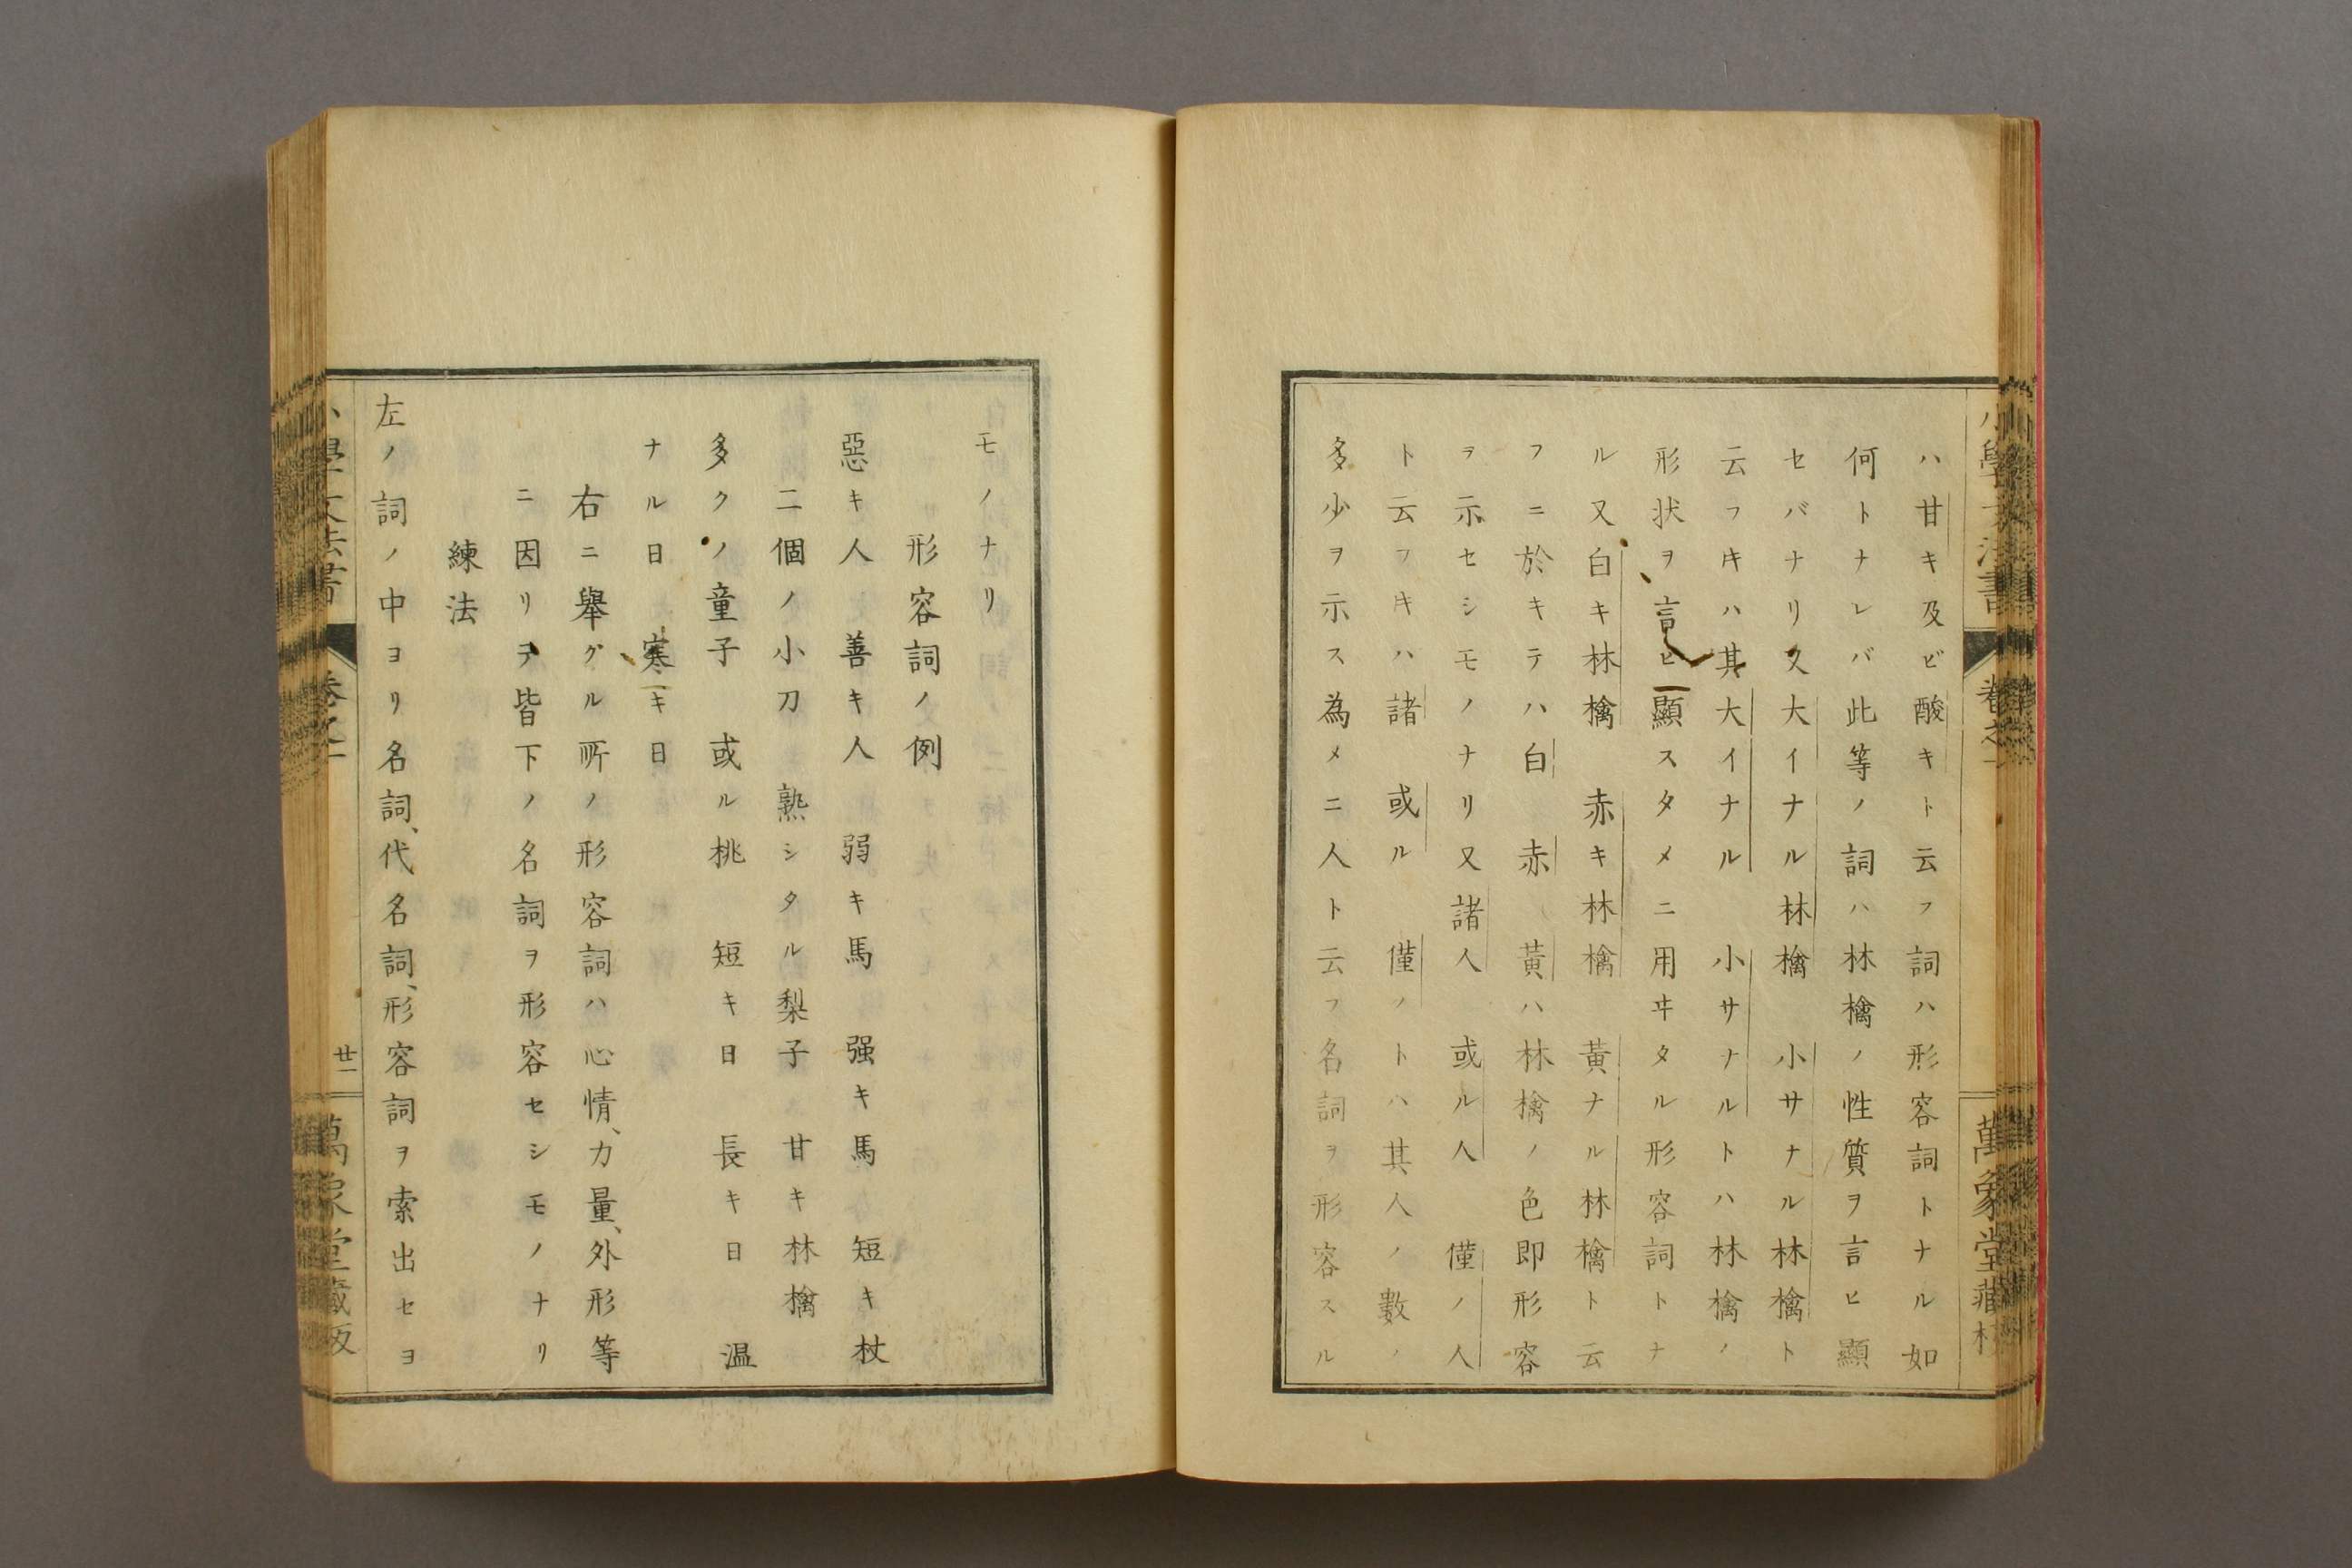 ハ甘キ及ビ酸キト云フ詞ハ形容詞トナル如
何トナレバ此等ノ詞ハ林檎ノ性質ヲ言ヒ顯
セバナリ又大イナル林檎　小サナル林檎ト
云フキハ其大イナル　小サナルトハ林檎ノ
形状ヲ言ヒ顯スタメニ用ヰタル形容詞トナ
ル又白キ林檎　赤キ林檎　黃ナル林檎ト云
フニ於キテハ白　赤　黃ハ林檎ノ色即形容
ヲ示セシモノナリ又諸人　或ル人　僅ノ人
ト云フキハ諸　或ル　僅ノトハ其人ノ數ノ
多少ヲ示ス為メニ人ト云フ名詞ヲ形容スル
モノナリ
形容詞ノ例
惡キ人　善キ人　弱キ馬　强キ馬　短キ杖
二個ノ小刀　熟シタル梨子　甘キ林檎
多クノ童子　或ル桃　短キ日　長キ日　温
ナル日　寒キ日
右ニ舉グル所ノ形容詞ハ心情、力量、外形等
ニ因リテ皆下ノ名詞ヲ形容セシモノナリ
練法
左ノ詞ノ中ヨリ名詞、代名詞、形容詞ヲ索出セヨ
小學文法書　卷之一　廿一　萬象堂藏版